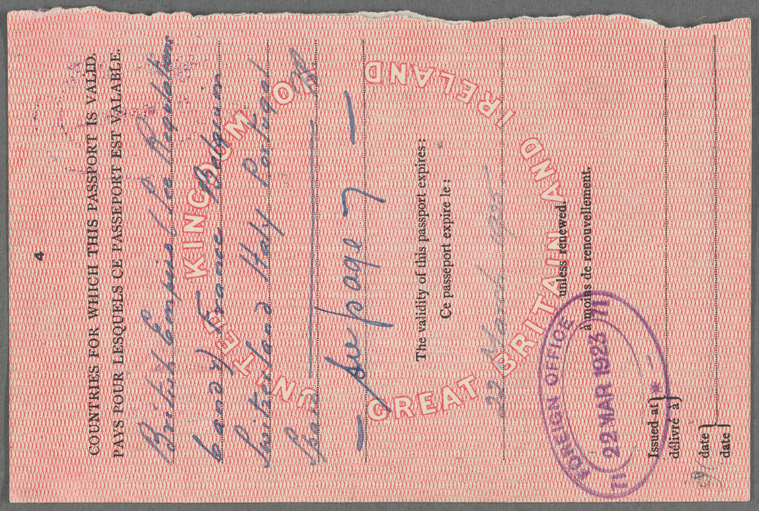 4
COUNTRIES FOR WHICH THIS PASSPORT IS VALID.
PAYS POUR LESQUELS CE PASSEPORT EST VALABLE.
British Empire (See Regulations
6 and 7) France Belgium
Switzerland Italy Portugal
Spain
— see page 7 —
UNITED KINGDOM OF
GREAT BRITAIN AND IRELAND
The validity of this passport expires:
Ce passeport expire le:
22 March 1925
unless renewed.
à moins de renouvellement.
FOREIGN OFFICE
71 22 MAR 1923 71
Issued at
délivré à
date
date